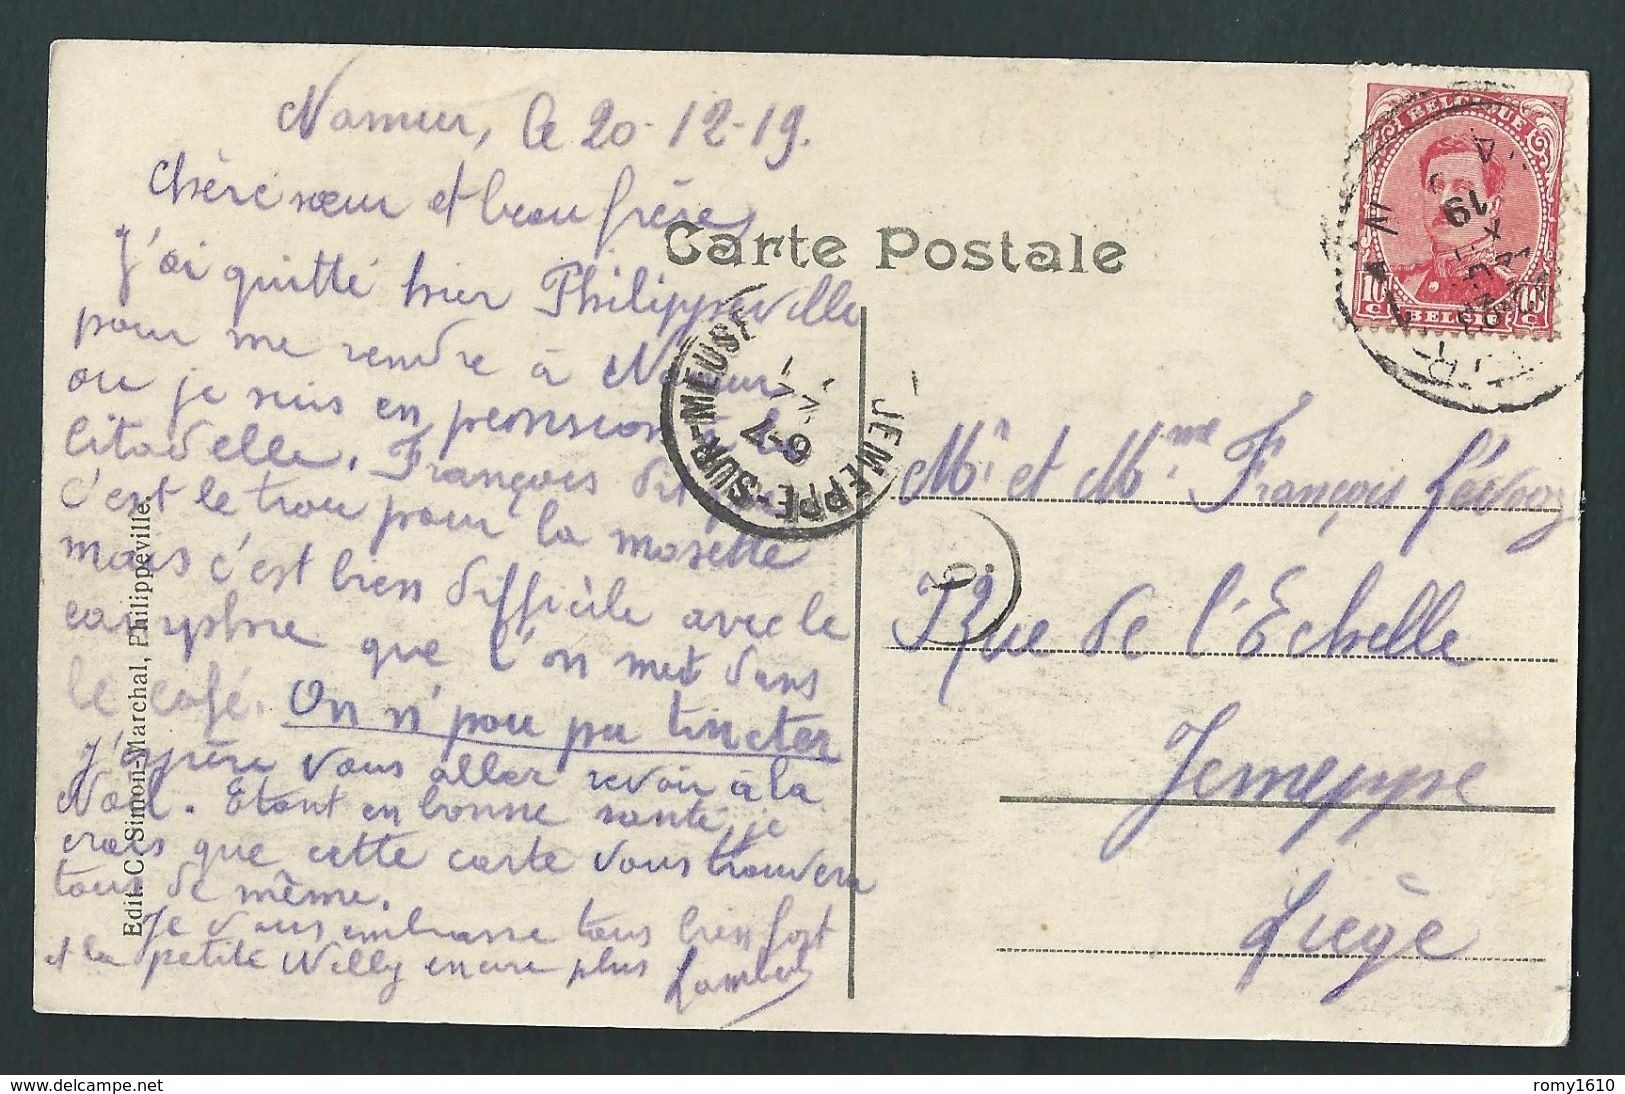 Namur, le 20-12-19.
Chère sœur et beau frère,
J'ai quitté hier Philippeville
pour me rendre à Namur
ou je suis en pension à la
Citadelle. François dit
c'est le trou pour la mosette
mais c'est bien difficile avec le
camphre que l'on met dans
le café. On n'pou pu tincter
J'espère vous aller revoir à la
Noël. Etant en bonne santé, je
crois que cette carte vous trouvera
tous de même.
Je vous embrasse tous bien fort
et la petite Willy encore plus Lambert
Edit. C. Simon-Marchal, Philippeville.
Carte Postale
JEMEPPE-SUR-MEUSE
6-7
BELGIQUE
10 c 10 c
BELGIË
19
Mr et Mme François
Rue de l'Echelle
Jemeppe
Liège
romy1610